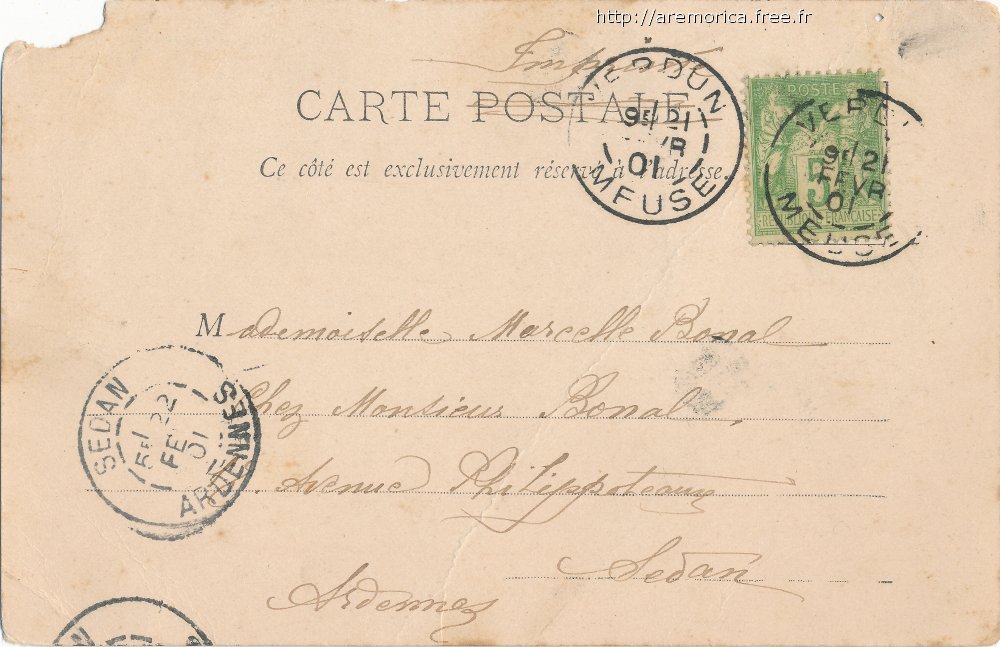 http://aremorica.free.fr
Imprimé
CARTE POSTALE
Ce côté est exclusivement réservé à l'adresse.
VERDUN
9E/21
VR
01
MEUSE
POSTE
5
REPUBLIQUE FRANÇAISE
VERDU
9E/21
FEVR
01
MEUSE
Mademoiselle Marcelle Bonal
Chez Monsieur Bonal
Avenue Philippoteaux
Sedan
Ardennes
SEDAN
5E/22
FE
01
ARDENNES